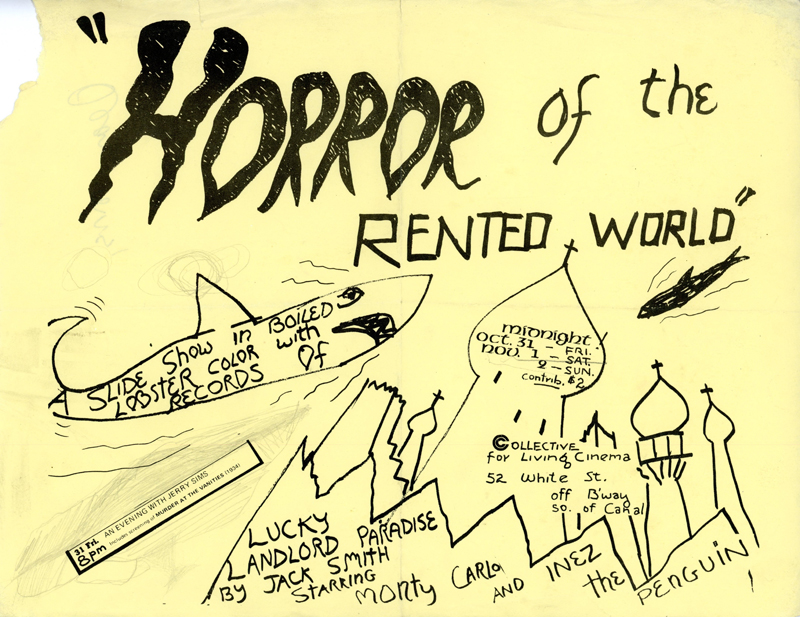 "HORROR of the
RENTED WORLD"
SLIDE Show in BOILED
LOBSTER COLOR with
RECORDS Of
midnight
OCT. 31 — FRI.
NOV. 1 — SAT.
2 — SUN.
Contrib. $2
COLLECTIVE
for Living Cinema
52 White St.
off B'way
so. of Canal
31 Fri. AN EVENING WITH JERRY SIMS
8pm Includes screening of MURDER AT THE VANITIES (1934)
LUCKY
LANDLORD PARADISE
BY JACK SMITH
STARRING
MONTY CARLO AND INEZ the PENGUIN!